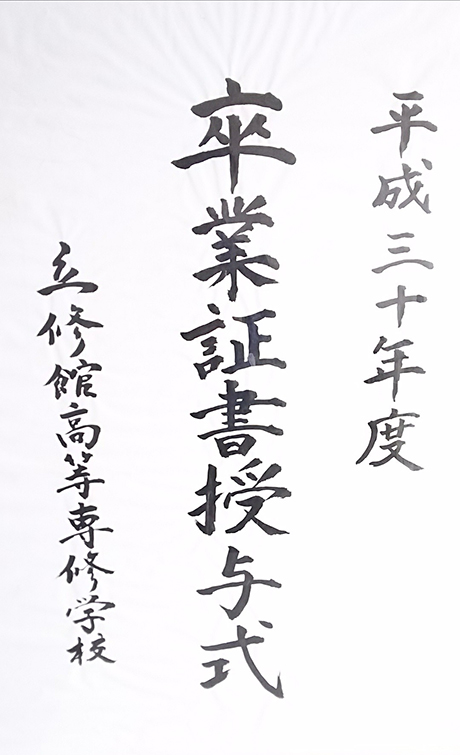 平成三十年度
卒業証書授与式
立修館高等専修学校